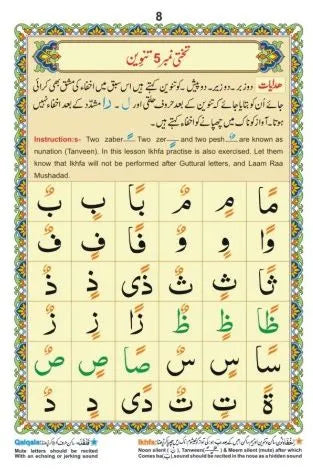 8
تختی نمبر 5 تنوین
ھدایات دوزبر۔ دوزیر۔ دوپیش ۔ کوتنوین کہتے ہیں اس سبق میں اخفاء کی مشق بھی کرائی
جائے اُن کو بتایا جائے کہ تنوین کے بعد حروف حلقی اور ل ۔ ر مشدّد کے بعد اخفاء نہیں
ہوتا۔ آواز کو ناک میں چھپانے کو اخفاء کہتے ہیں۔
Instruction:s- Two zaber Two zer and two pesh are known as
nunation (Tanveen). In this lesson Ikhfa practise is also exercised. Let them
know that Ikhfa will not be performed after Guttural letters, and Laam Raa
Mushadad.
مًا مٍ مٌ بًا بٍ بٌ
وًا وٍ وٌ فًا فٍ فٌ
ثًا ثٍ ثٌ ذًی ذٍ ذٌ
ظًا ظٍ ظٌ زًا زٍ زٌ
سًا سٍ سٌ صًا صٍ صٌ
ةً تٍ تٌ دًی دٍ دٌ
Qalqala:
Mute letters should be recited
With an echoing or jerking sound
Ikhfa:
Noon silent (نْ), Tanween & Meem silent (mute) after which
Comes baa(ب),sound should be recited in the nose as a hidden sound